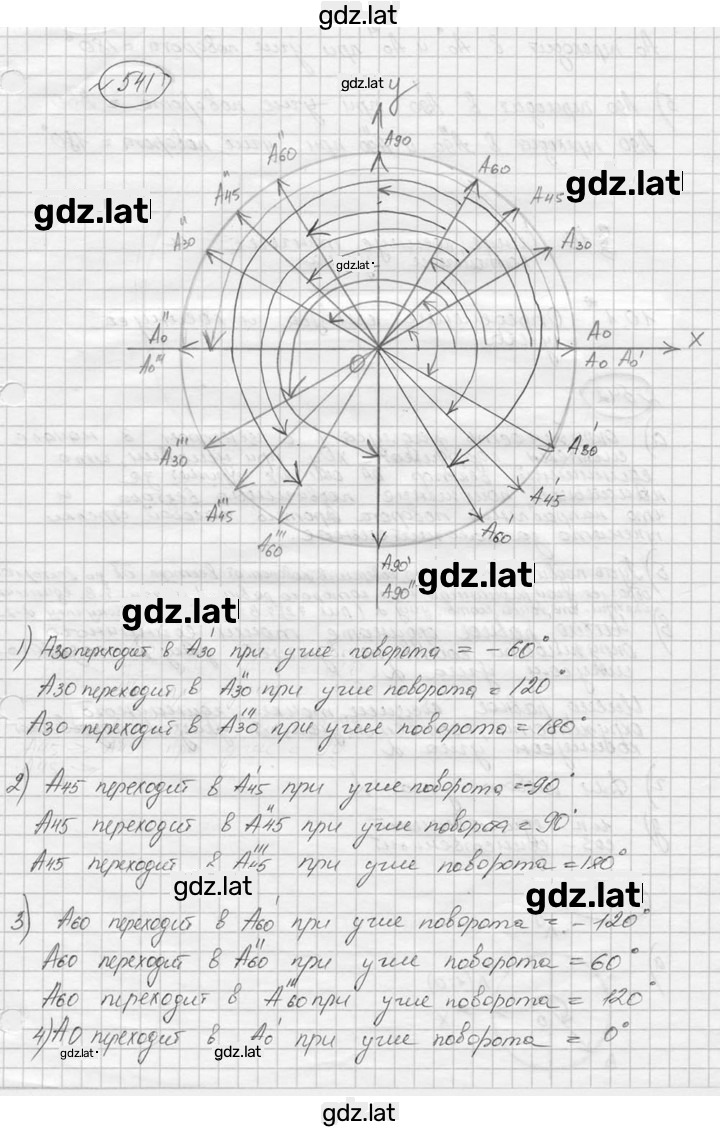 gdz.lat
541
gdz.lat y
A90
A''60
A60
A''45
A45
gdz.lat
gdz.lat
A''30
A30
gdz.lat
A0''
A0
x
A0'''
O
A0 A0'
A'''30
A'30
A'''45
A'45
A60'''
A60'
A90'
A90''
gdz.lat
gdz.lat
1) A30 переходит в A'30 при угле поворота = - 60°
A30 переходит в A''30 при угле поворота = 120°
A30 переходит в A'''30 при угле поворота = 180°
2) A45 переходит в A'45 при угле поворота =-90°
A45 переходит в A''45 при угле поворота = 90°
A45 переходит в A'''45 при угле поворота = 180°
gdz.lat
gdz.lat
3) A60 переходит в A60' при угле поворота = - 120°
A60 переходит в A''60 при угле поворота = 60°
A60 переходит в A'''60 при угле поворота = 120°
4) A0 переходит в A0' при угле поворота = 0°
gdz.lat
gdz.lat
gdz.lat